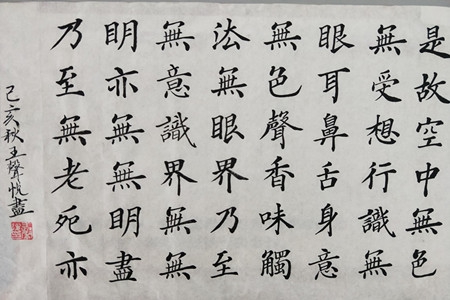 是故空中無色
無受想行識無
眼耳鼻舌身意
無色聲香味觸
法無眼界乃至
無意識界無無
明亦無無明盡
乃至無老死亦
己亥秋王聲悦